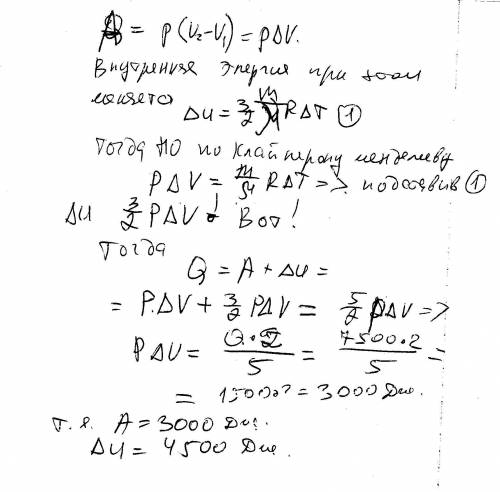 A = P(V₂-V₁) = PΔV.
Внутренняя энергия при этом
меняется ΔU = 3/2 m/M RΔT ①
Тогда по Клайперону менделееву
PΔV = m/M RΔT => подставив ①
ΔU 3/2 PΔV ! Вот !
Тогда
Q = A + ΔU =
= P.ΔV + 3/2 PΔV = 5/2 PΔV =>
PΔV = Q·2/5 = 7500·2/5 =
= 1500·2 = 3000 Дж.
т.е. A = 3000 Дж.
ΔU = 4500 Дж.